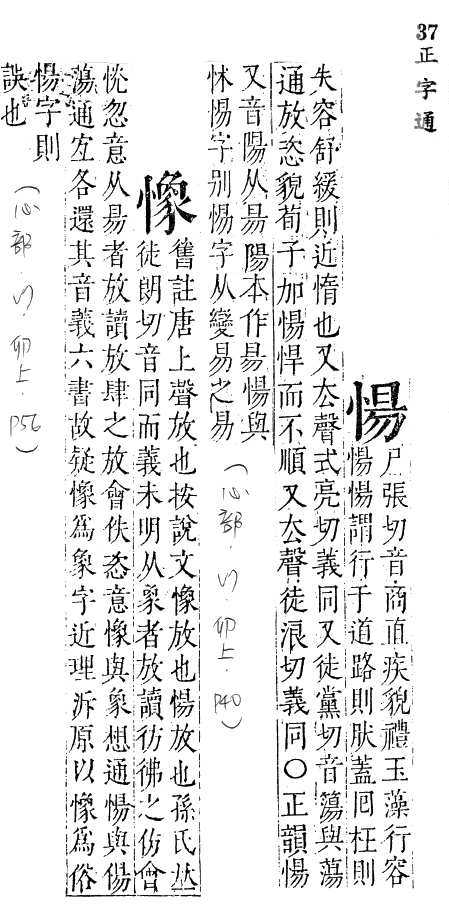 37 正字通
惕
尸張切音商直疾貌禮玉藻行容
惕惕謂行于道路則肰蓋回枉則
失容舒緩則近惰也又厺聲式亮切義同又徒黨切音簜與蕩
通放恣貌荀子加惕悍而不順又厺聲徒浪切義同〇正韻惕
又音陽从昜陽本作昜惕與
怵惕字别惕字从變易之易
(心部.心.卯上.P40)
憿
舊註唐上聲放也按說文像放也惕放也孫氏𠀤
徒朗切音同而義未明从象者放讀彷彿之仿會
恍忽意从昜者放讀放肆之放會佚恣意像與象想通惕與偒
蕩通宐各還其音義六書故疑像爲象字近理泝原以像爲俗
惕字則
誤也
(心部.心.卯上.P56)